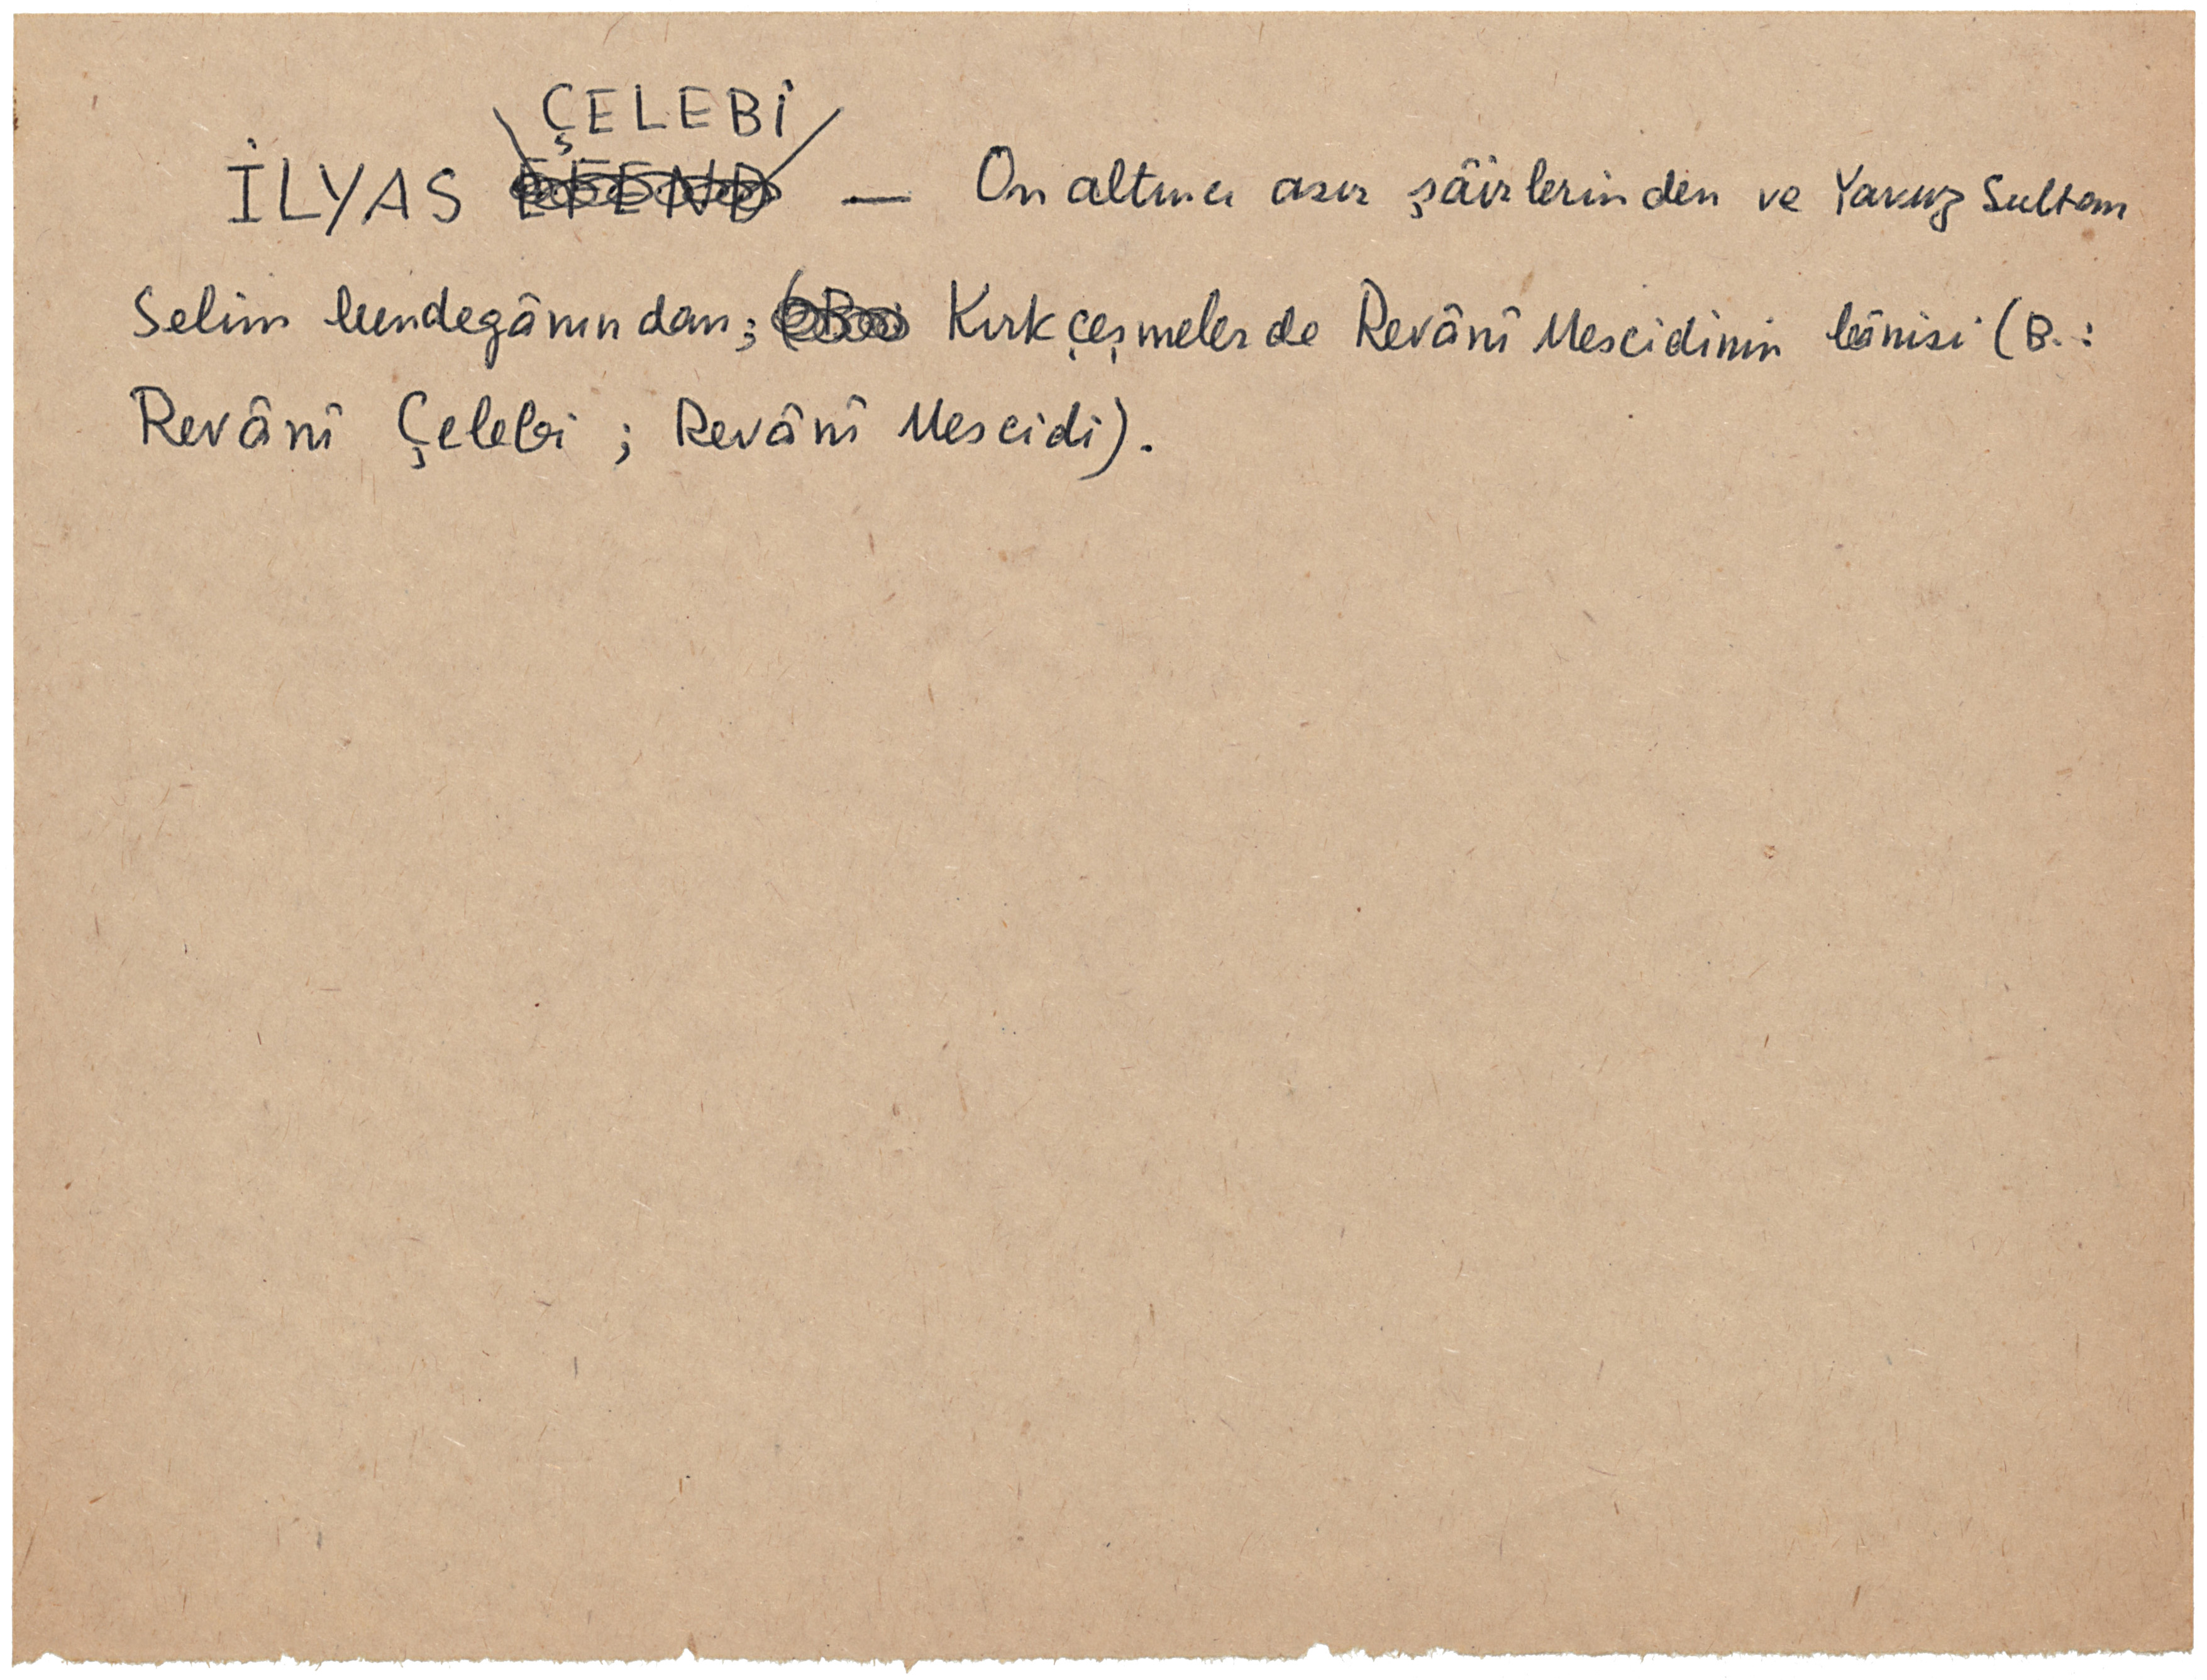 ÇELEBİ
İLYAS — On altıncı asır şâirlerinden ve Yavuz Sultan
Selim bendegânından; Kırkçeşmelerde Revânî Mescidinin bânisi (B.:
Revânî Çelebi ; Revânî Mescidi).